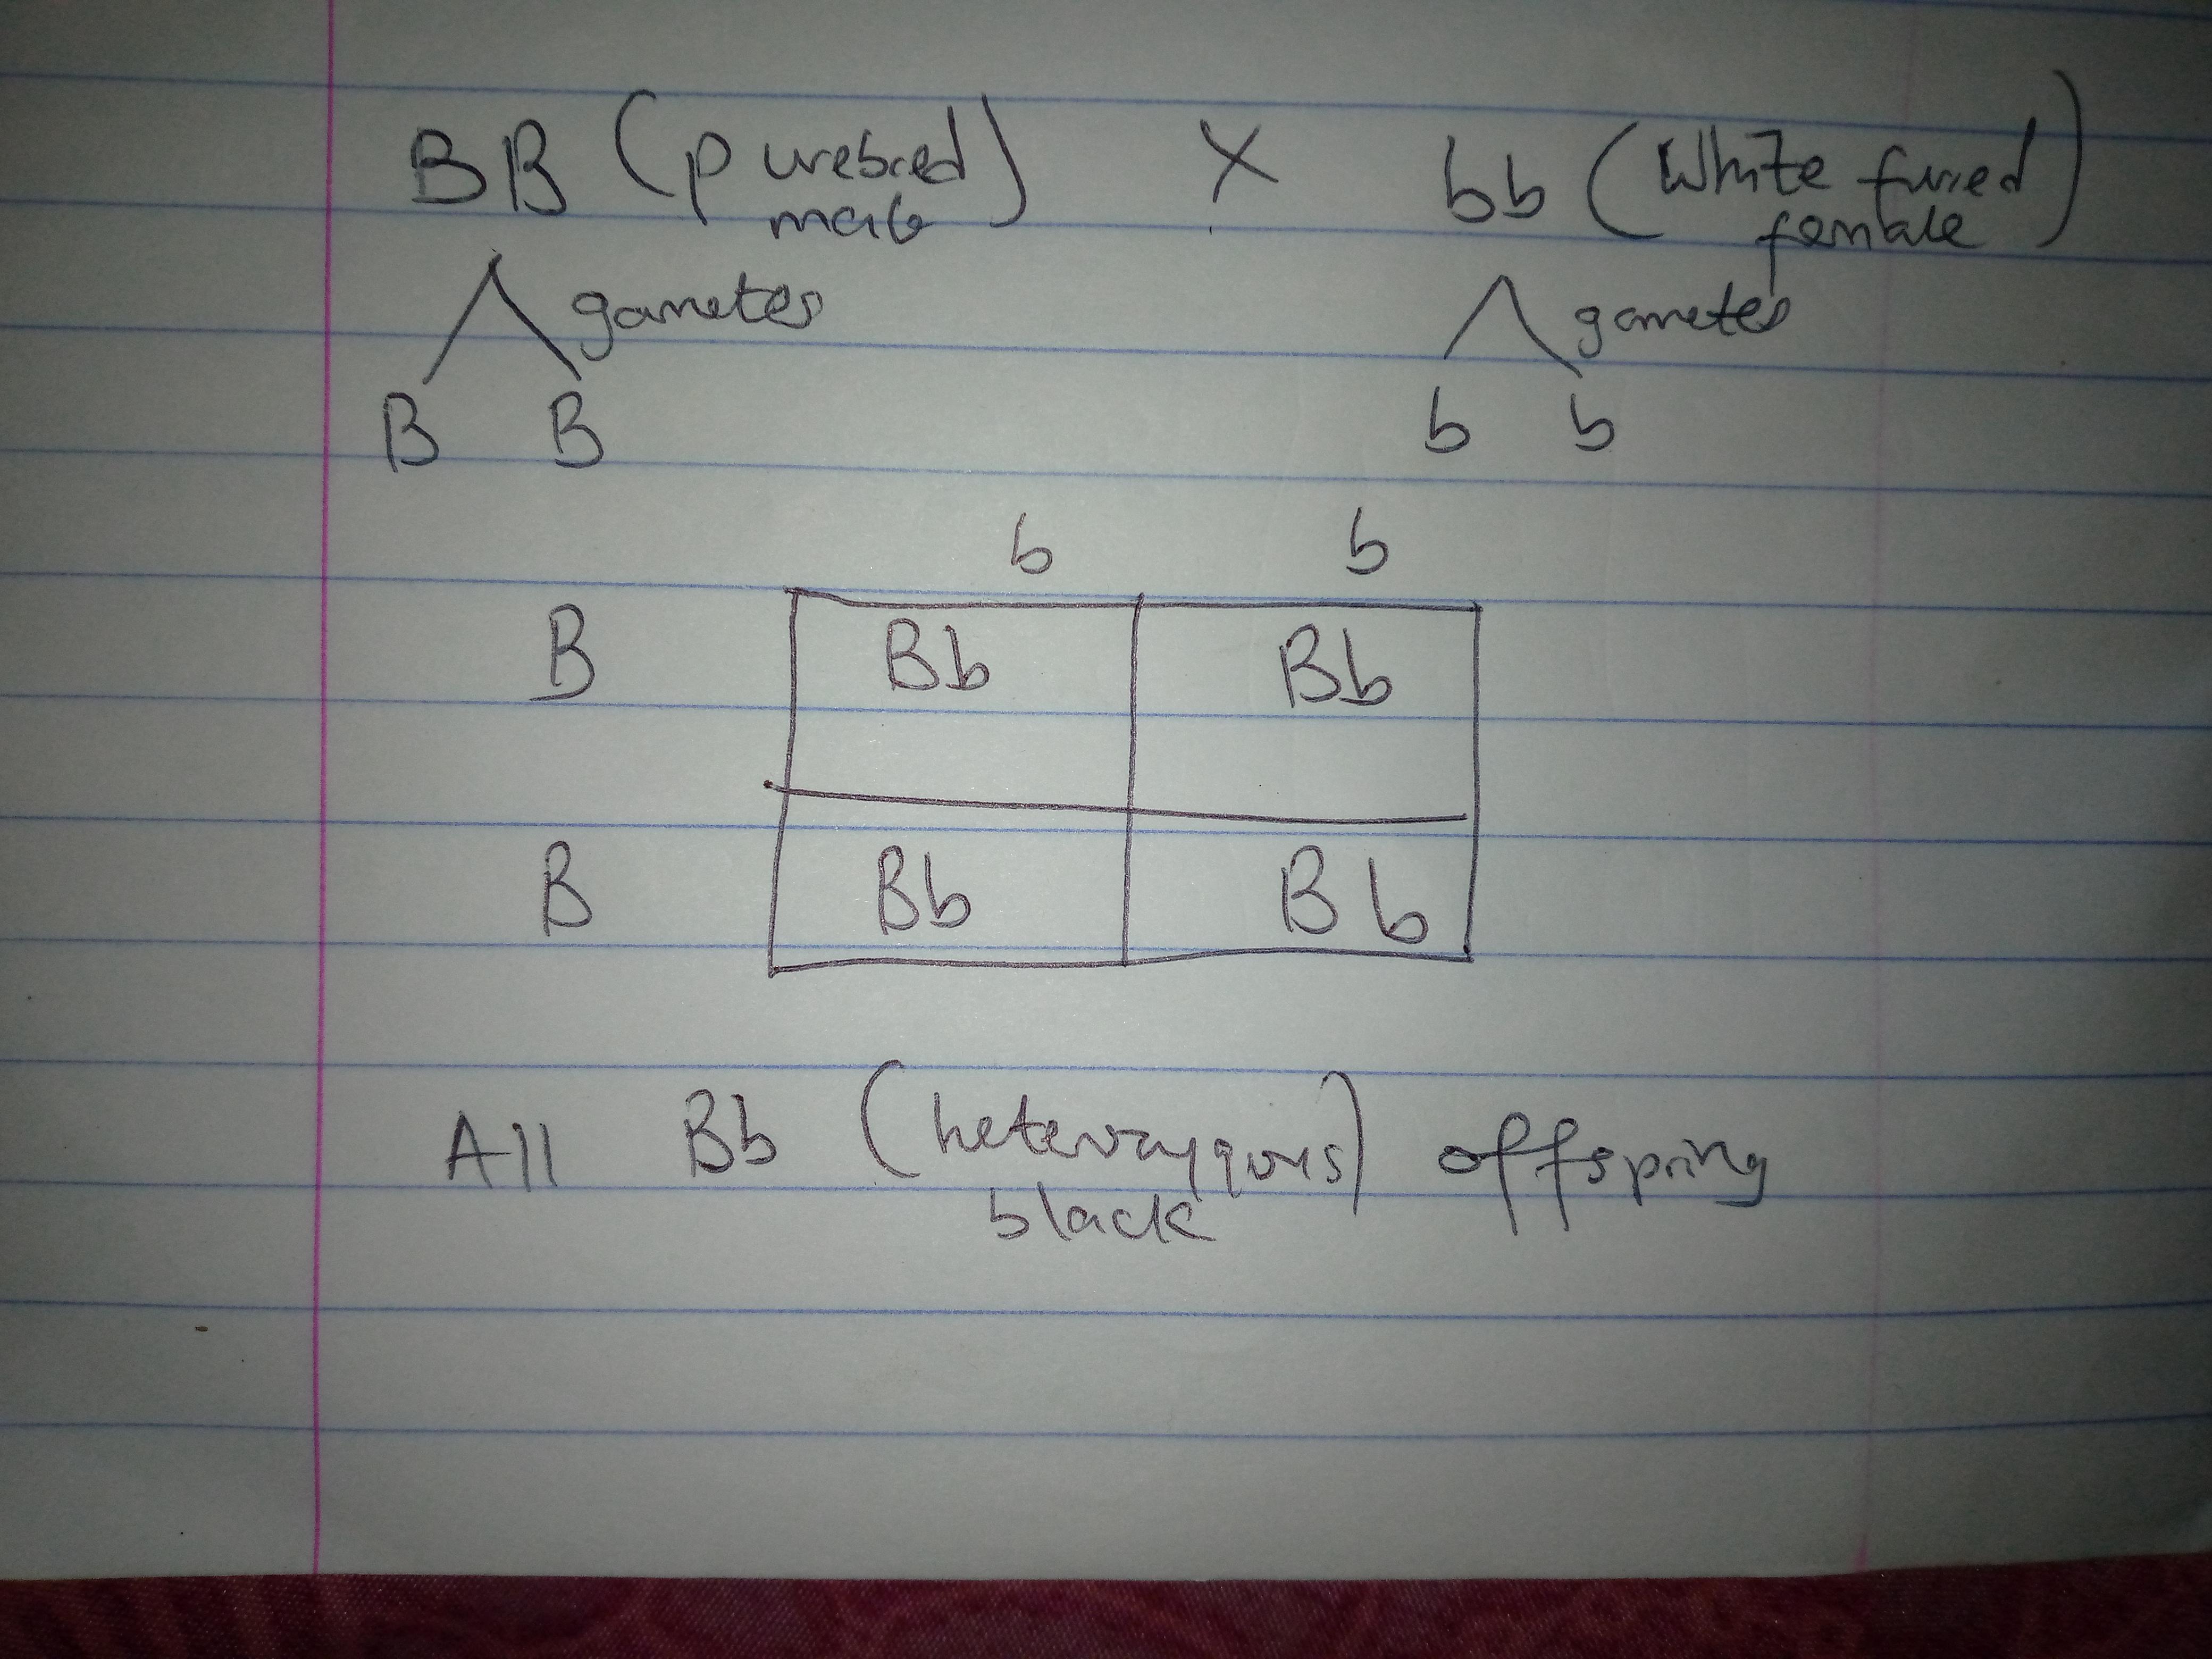 BB (purebred X bb (White furred
male) female)
gametes gametes
B B b b
b b
B Bb Bb
B Bb Bb
All Bb (heterozygous) offspring
black